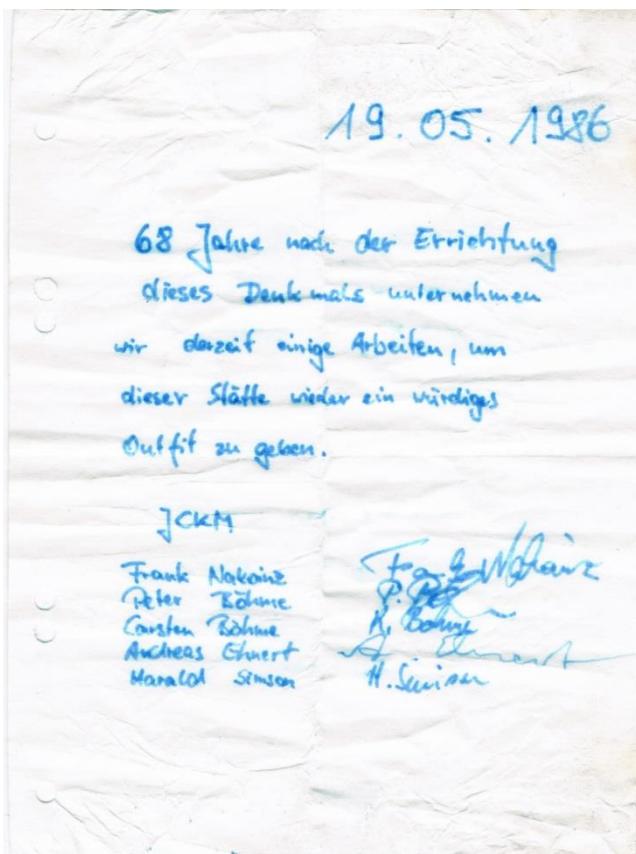 19. 05. 1986
68 Jahre nach der Errichtung
dieses Denkmals unternehmen
wir derzeit einige Arbeiten, um
dieser Stätte wieder ein würdiges
Outfit zu geben.
JCKM
Frank Nakoinz
Peter Böhme
Carsten Böhme K. Böhme
Andreas Ehnert A. Ehnert
Harald Simson H. Simson